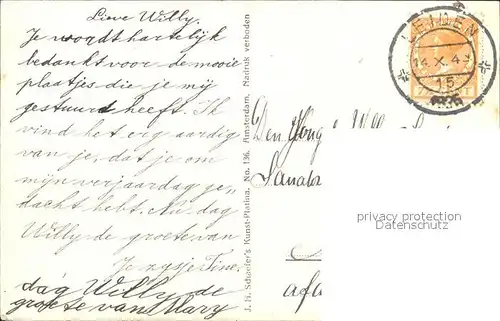 Lieve Willy.
Je wordt hartelijk
bedankt voor de mooie
plaatjes die je mij
gestuurd heeft. Ik
vind het erg aardig
van je, dat je om
mijn verjaardag ge-
dacht hebt. Nu dag
Willy de groete van
Je zusje Tine.
dag Willy de
groete van Mary
J. H. Schaefer's Kunst-Platina. No. 136. Amsterdam. Nadruk verboden
LEIDEN
14.X.43
15
Den Jonge
Sanator
afd
privacy protection
Datenschutz